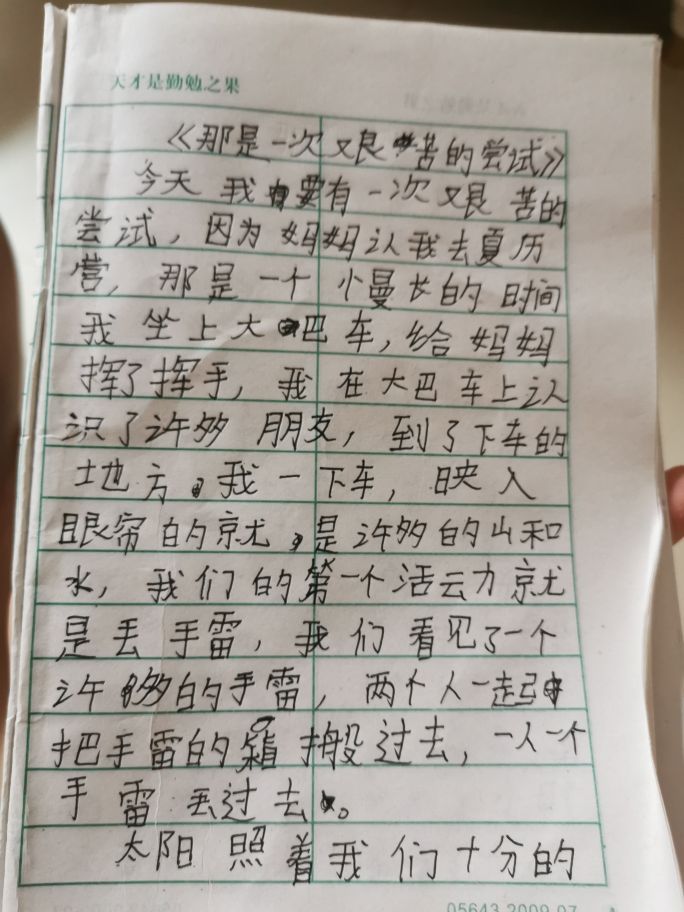 天才是勤勉之果
《那是一次艰苦的尝试》
今天我要有一次艰苦的
尝试，因为妈妈认我去夏历
营，那是一个小曼长的时间
我坐上大巴车，给妈妈
挥了挥手，我在大巴车上认
识了许多朋友，到了下车的
地方。我一下车，映入
眼帘的就是许多的山和
水，我们的第一个活云力就
是丢手雷，我们看见了一个
许多的手雷，两个人一起
把手雷的箱搬过去，一人一个
手雷丢过去。
太阳照着我们十分的
05643 2009.07